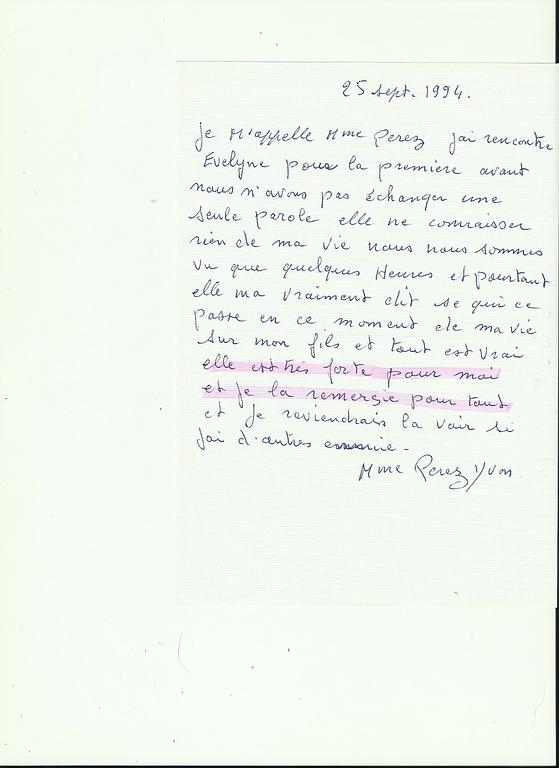 25 sept. 1994.
Je M'appelle Mme Perez Jai rencontre
Evelyne pour la premiere avant
nous n'avons pas échanger une
seule parole elle ne connaisser
rien de ma vie nous nous sommes
vu que quelques Heures et pourtant
elle ma vraiment dit se qui ce
passe en ce moment de ma vie
sur mon fils et tout est vrai
elle est tres forte pour moi
et je la remergie pour tout
et je reviendrais la voir si
jai d'autres
Mme Perez Yvon